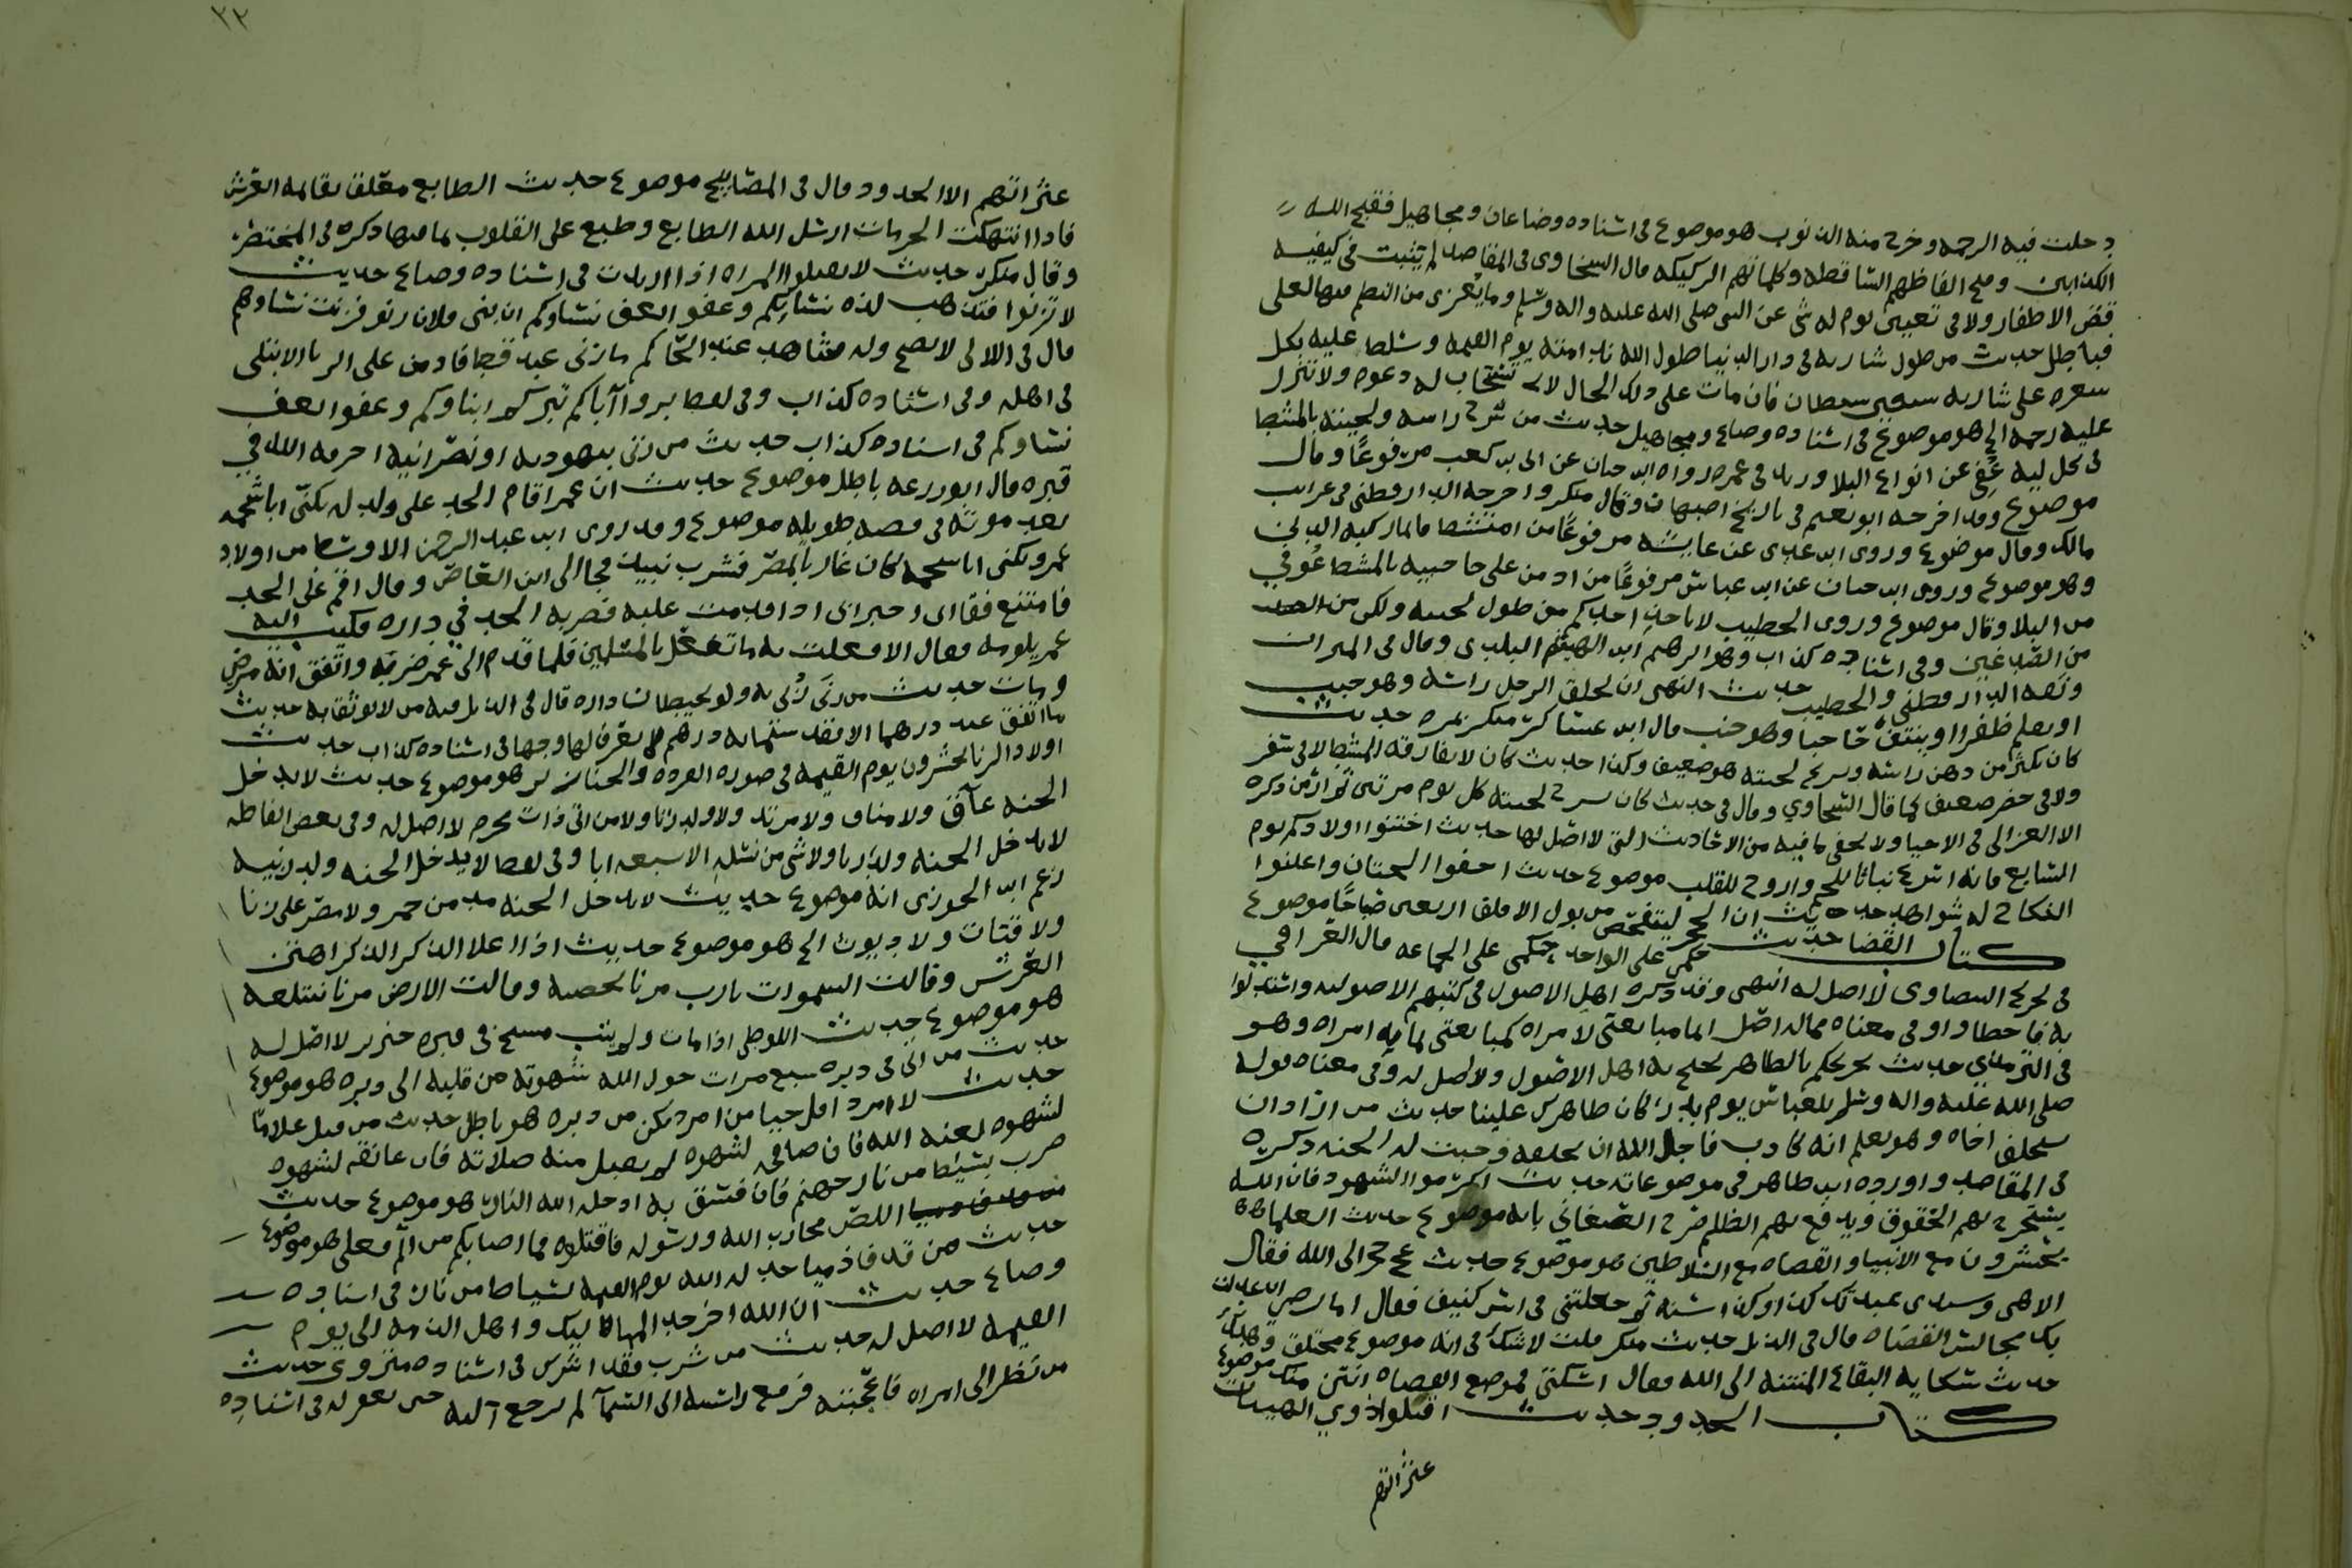 دخلت فيه الرحمه وخرج منه الذنوب هو موضوع في اسناده وضاعان ومجاهيل فقبح الله
الكذابين وقبح الفاظهم الساقطه وكلماتهم الركيكه قال السخاوى في المقاصد لم يثبت في كيفيه
قص الاظفار ولا في تعيين يوم له شى عن النبى صلى الله عليه واله وسلم وما يعزى من النظم فيها لعلى
فباطل حديث من طول شاربه في دار الدنيا طول الله ندامته يوم القيمه وسلط عليه بكل
شعره على شاربه سبعين شيطان فان مات على ذلك الحال لا تستجاب له دعوه ولا تنزل
عليه رحمه الخ هو موضوع في اسناده وضاع ومجاهيل حديث من سرح راسه ولحيته بالمشط
في كل ليله عوفي من انواع البلا وزيد في عمره رواه ابن حبان عن ابى بن كعب مرفوعا وقال
موضوع وقد اخرجه ابو نعيم في تاريخ اصبهان وقال منكر واخرجه الدارقطنى في غرايب
مالك وقال موضوع وروى ابن عدى عن عايشه مرفوعا من امتشط قايما ركبه الدين
وهو موضوع وروى ابن حبان عن ابن عباس مرفوعا من ادمن على حاجبيه بالمشط عوفي
من البلا وقال موضوع وروى الخطيب لا ياخذ احدكم من طول لحيته ولكن من
من الصدغين وفي اسناده كذاب وهو ابرهيم ابن الهيثم البلدى وقال في الميزان
وثقه الدارقطني والخطيب حديث النهى ان يحلق الرجل راسه وهو جنب
او يقلم ظفرا او ينتف حاجبا وهو جنب قال ابن عساكر منكر بمره حديث
كان يكثر من دهن راسه ويسرح لحيته هو ضعيف وكذا حديث كان لا يفارقه المشط لا في سفر
ولا في حضر ضعيف كما قال السخاوي وقال في حديث كان يسرح لحيته كل يوم مرتين لم ار من ذكره
الا الغزالى في الاحيا ولا يخفى ما فيه من الاحاديث التى لا اصل لها حديث اختنوا اولادكم يوم
السابع فانه اسرع نباتا للحم واروح للقلب موضوع حديث اخفوا الختان واعلنوا
النكاح له شواهد حديث ان الحجر ليتفحص من بول الاقلف اربعين صباحا موضوع
كتاب القضا حديث حكمى على الواحد حكمى على الجماعه قال العراقي
في تخريج البيضاوى لا اصل له انتهى وقد ذكره اهل الاصول في كتبهم الاصوليه واستدلوا
به فاخطاوا وفي معناه مما له اصل انما مبايعتى لامراه كمبايعتى لمايه امراه وهو
في الترمذي حديث نحن نحكم بالظاهر يحتج به اهل الاصول ولا اصل له وفي معناه قوله
صلى الله عليه واله وسلم للعباس يوم بدر كان ظاهرك علينا حديث من اراد ان
يستحلف اخاه وهو يعلم انه كاذب فاجل الله ان يحلفه وجبت له الجنه ذكره
في المقاصد واورده ابن طاهر في موضوعاته حديث اكرموا الشهود فان الله
يستخرج بهم الحقوق ويدفع بهم الظلم صرح الصغاني بانه موضوع حديث العلما
يحشرون مع الانبيا والقضاه مع السلاطين هو موضوع حديث عج حجر الى الله فقال
الاهى وسيدى عبدتك كذا وكذا سنه ثم جعلتنى في اس كنيف فقال اما ترضى ان عدلت
بك مجالس القضاه قال في الذيل حديث منكر قلت لا شك في انه موضوع مختلق وهكذا
حديث شكايه البقاع المنتنه الى الله فقال اسكتى فموضع القضاه انتن منك موضوع
كتاب الحدود حديث اقيلوا ذوي الهيئات
عثراتهم
٢٢
عثراتهم الا الحدود وقال في المصابيح موضوع حديث الطابع معلق بقايمه العرش
فاذا انتهكت الحرمات ارسل الله الطابع وطبع على القلوب بما فيها ذكره في المختصر
وقال منكر حديث لا تقتلوا المراه اذا ارتدت في اسناده وضاع حديث
لا تزنوا فتذهب لذه نسائكم وعفوا تعف نساوكم ان بنى فلان زنو فزنت نساوهم
قال في اللالى لا يصح وله شاهد عند الحاكم ما زنى عبد قط فادمن على الزنا الا ابتلى
في اهله وفي اسناده كذاب وفي لفظ بروا آباكم تبركم ابناوكم وعفوا تعف
نساوكم في اسناده كذاب حديث من زنى بيهوديه او نصرانيه احرقه الله في
قبره قال ابو زرعه باطل موضوع حديث ان عمر اقام الحد على ولد له يكنى ابا شحمه
بعد موته في قصه طويله موضوع وقد روى ان عبد الرحمن الاوسط من اولاد
عمر ويكنى ابا شحمه كان غازيا بمصر فشرب نبيذا فجا الى ابن العاص وقال اقم علي الحد
فامتنع فقال انى اخبر ابى اذا قدمت عليه فضربه الحد في داره فكتب اليه
عمر يلومه فقال الا فعلت به ما تفعل بالمسلمين فلما قدم الى عمر ضربه واتفق انه مرض
ومات حديث من زنى زُنى به ولو بحيطان داره قال في الذيل فيه من لا يوثق به حديث
اولاد الزنا يحشرون يوم القيمه في صوره القرده والخنازير هو موضوع حديث لا يدخل
الجنه عاق ولا منان ولا مرتد ولا ولد زنا ولا من اتى ذات محرم لا اصل له وفي بعض الفاظه
لا يدخل الجنه ولد زنا ولا شى من نسله الى سبعه ابا وفي لفظ لا يدخل الجنه ولد زنيه
زعم ابن الجوزى انه موضوع حديث لا يدخل الجنه مدمن خمر ولا مصر على زنا
ولا قتات ولا ديوث الخ هو موضوع حديث اذا علا الذكر الذكر اهتز
العرش وقالت السموات يا رب مرنا نحصبه وقالت الارض مرنا نبتلعه
هو موضوع حديث اللوطى اذا مات ولم يتب مسخ في قبره خنزير لا اصل له
حديث من اتى في دبره سبع مرات حول الله شهوته من قلبه الى دبره هو موضوع
حديث لا امرد اقل حيا من امرد يمكن من دبره هو باطل حديث من قبل غلاما
لشهوه لعنه الله فان صافحه لشهوه لم يقبل منه صلاته فان عانقه لشهوه
ضرب بسياط من نار جهنم فان فسق به ادخله الله النار هو موضوع حديث
اللص محارب الله ورسوله فاقتلوه فما اصابكم من اثم فعلى هو موضوع
حديث من قذف ذميا حد له يوم القيمه بسياط من نار في اسناده
وضاع حديث ان الله اخر حد المماليك واهل الذمه الى يوم
القيمه لا اصل له حديث من شرب فقد اشرك في اسناده متروك حديث
من نظر الى امراه فاعجبته فرفع راسه الى السمآ لم يرجع اليه حتى يغفر له في اسناده